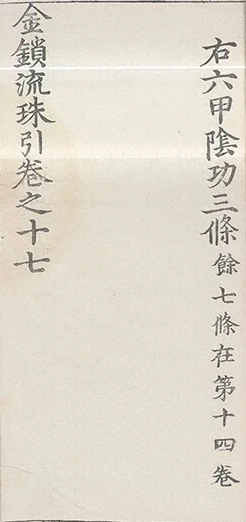 右六甲陰功三條餘七條在第十四卷
金鎖流珠引卷之十七